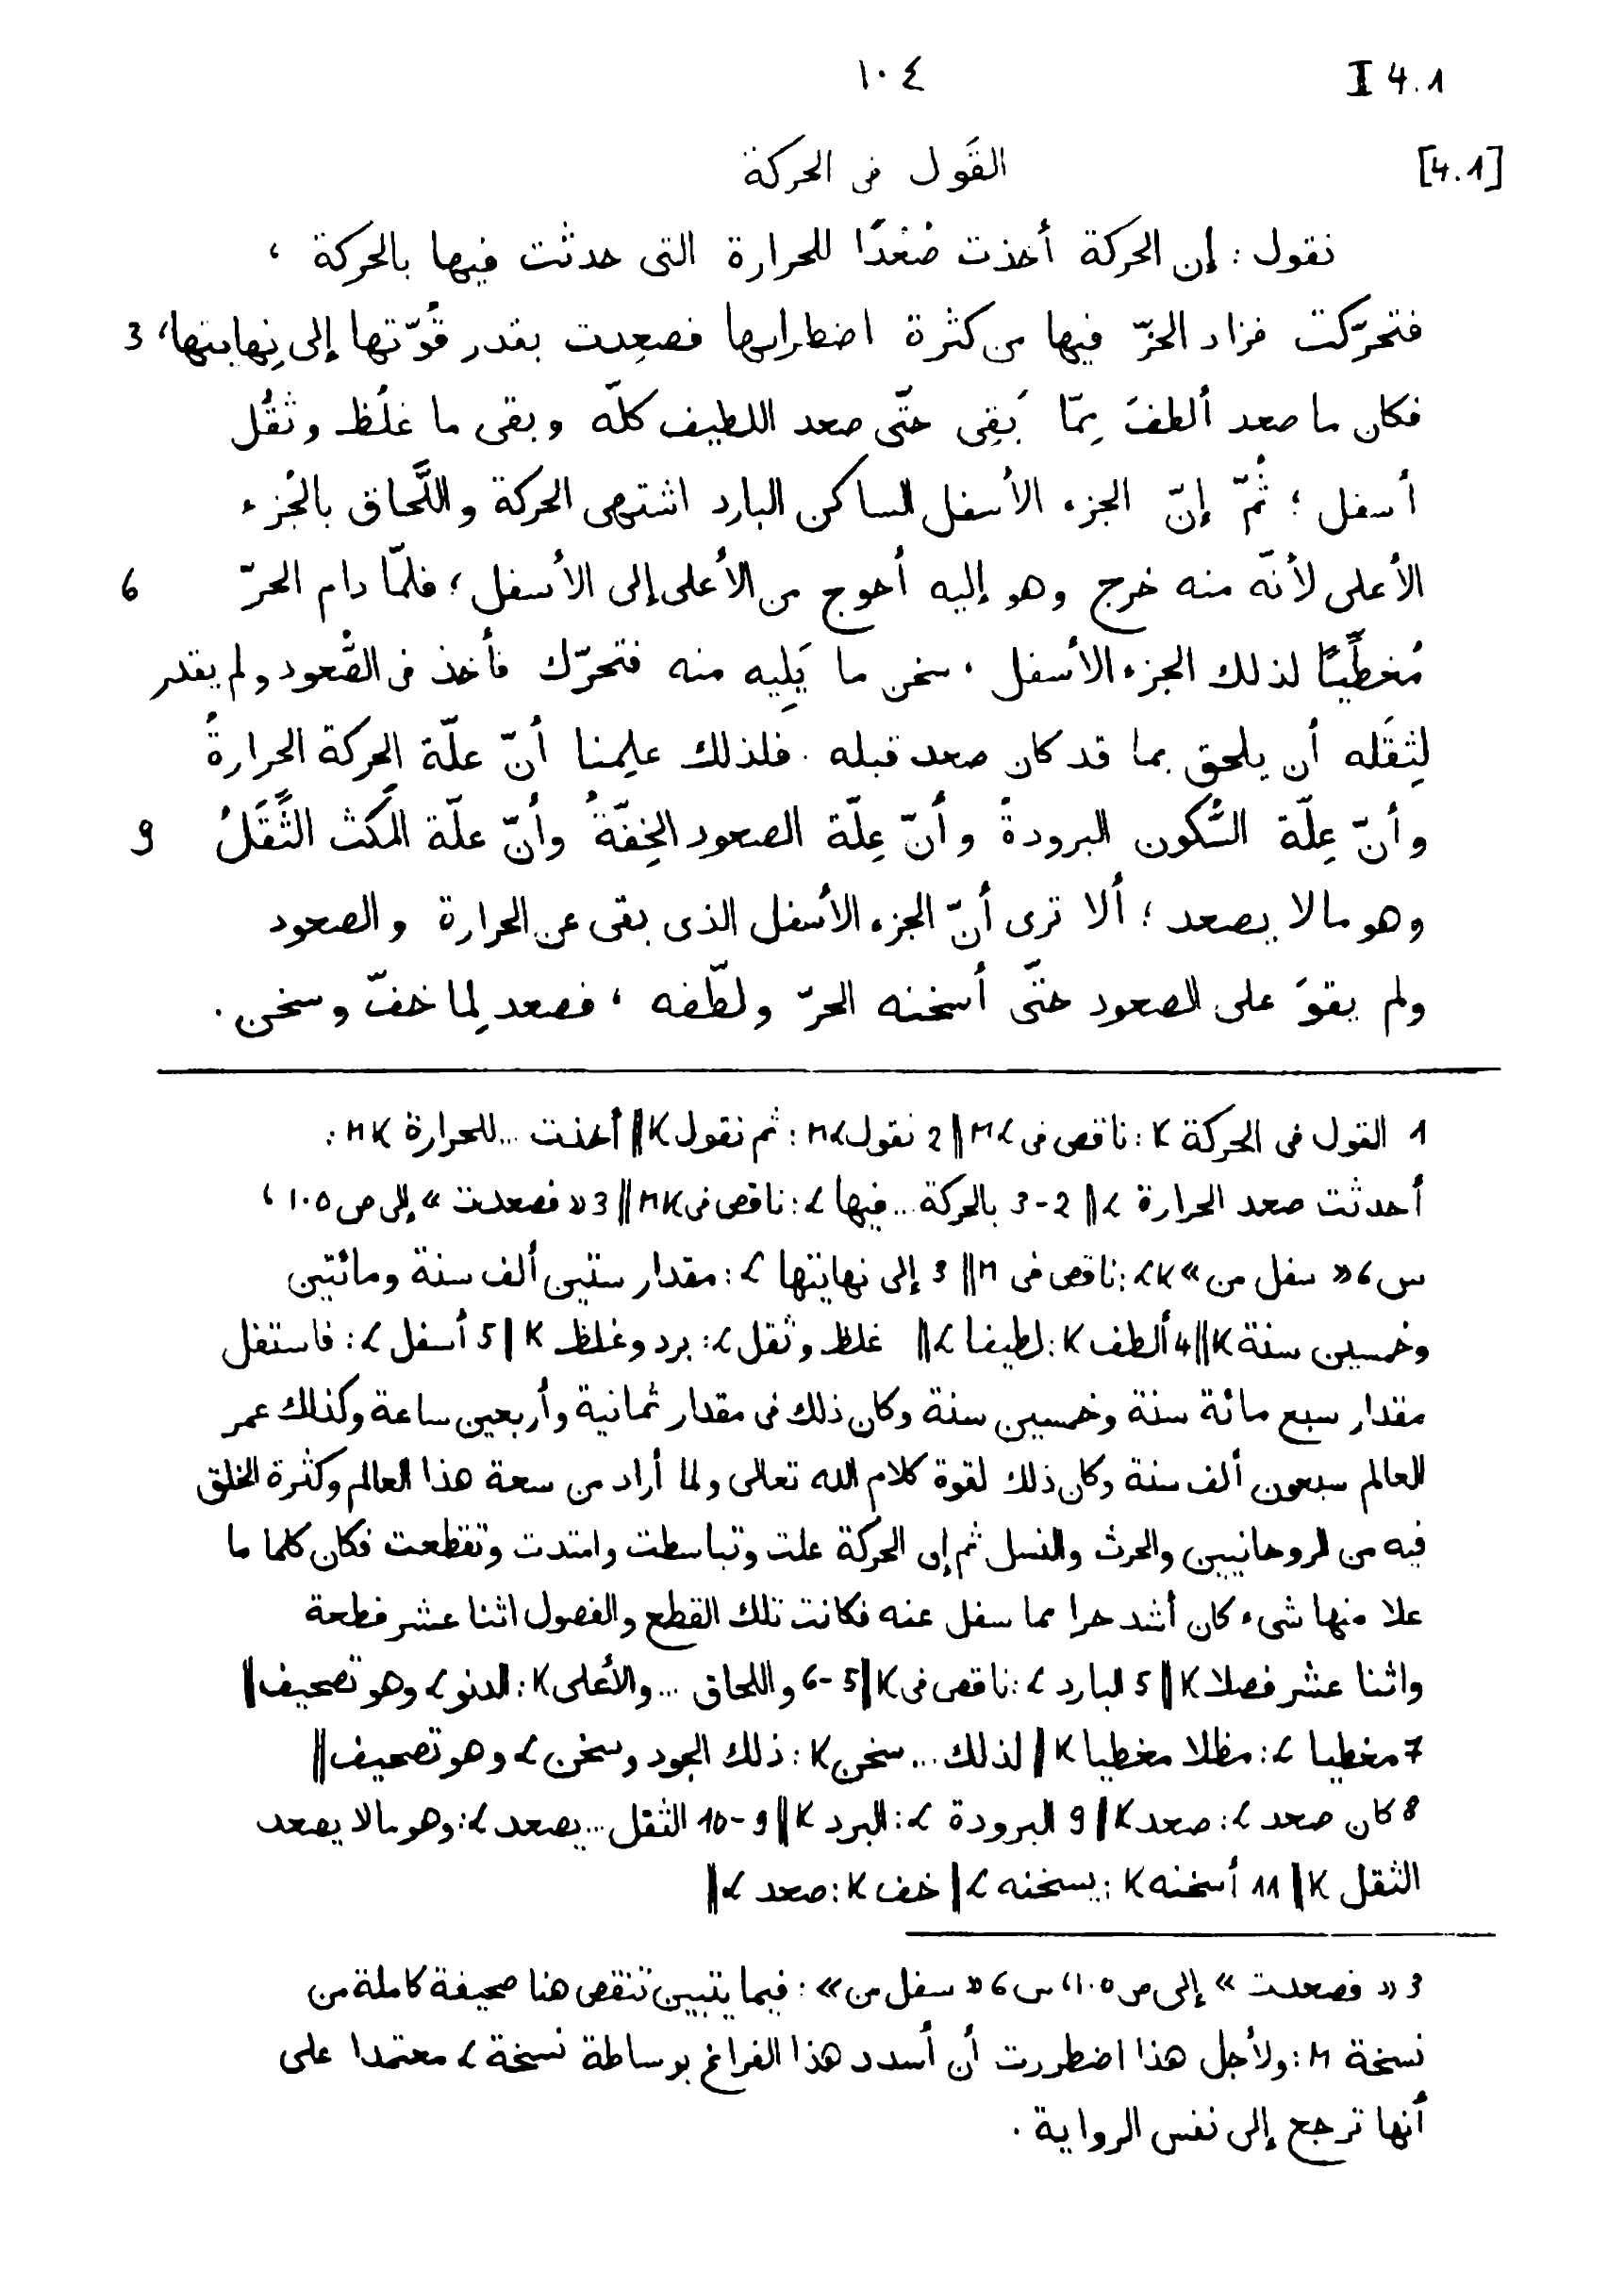 ١٠٤ I 4.1
[4.1] القَول فى الحركة
نقول : إن الحركة أخذت صُعْدًا للحرارة التى حدثت فيها بالحركة ،
فتحرّكت فزاد الحرّ فيها من كثرة اضطرابها فصعِدت بقدر قُوّتها إلى نِهايتها ، 3
فكان ما صعد ألطفَ مِمّا بَقِى حتّى صعد اللطيف كلّه وبقى ما غلُظ وثقُل
أسفل ؛ ثُمّ إنّ الجزء الأسفل الساكن البارد اشتهى الحركة واللَّحاق بالجُزء
الأعلى لأنّه منه خرج وهو إليه أحوج من الأعلى إلى الأسفل ؛ فلمّا دام الحرّ 6
مُغطِّيًا لذلك الجزء الأسفل ، سخن ما يَلِيه منه فتحرّك فأخذ فى الصُّعود ولم يقدر
لِثِقَله أن يلحق بما قد كان صعد قبله . فلذلك علِمنا أنّ علّة الحركة الحرارةُ
وأنّ عِلّة السُّكون البرودةُ وأنّ عِلّة الصعود الخِفّةُ وأنّ علّة المَكث الثَّقَلُ 9
وهو مالا يصعد ؛ ألا ترى أنّ الجزء الأسفل الذى بقى عن الحرارة والصعود
ولم يقوَ على الصعود حتّى أسخنه الحرّ ولطّفه ، فصعد لِما خفّ وسخن .
1 القول فى الحركة K : ناقص فى ML || 2 نقول ML : ثم نقول K || أخذت ... للحرارة MK :
أحدثت صعد الحرارة L || 2-3 بالحركة ... فيها L : ناقص فى MK || 3 « فصعدت » إلى ص ١٠٥ ،
س 6 « سفل من » LK : ناقص فى M || 3 إلى نهايتها L : مقدار ستين ألف سنة ومائتين
وخمسين سنة K || 4 ألطف K : لطيفا L || غلظ وثقل L : برد وغلظ K | 5 أسفل L : فاستفل
مقدار سبع مائة سنة وخمسين سنة وكان ذلك فى مقدار ثمانية وأربعين ساعة وكذلك عمر
العالم سبعون ألف سنة وكان ذلك لقوة كلام الله تعالى ولما أراد من سعة هذا العالم وكثرة الخلق
فيه من الروحانيين والحرث والنسل ثم إن الحركة علت وتباسطت وامتدت وتقطعت فكان كلما ما
علا منها شىء كان أشد حرا مما سفل عنه فكانت تلك القطع والفصول اثنا عشر قطعة
واثنا عشر فصلا K || 5 البارد L : ناقص فى K | 5-6 واللحاق ... والأعلى K : الدنو L وهو تصحيف ||
7 مغطيا L : مظلا مغطيا K || لذلك ... سخن K : ذلك الجود وسخن L وهو تصحيف ||
8 كان صعد L : صعد K || 9 البرودة L : البرد K || 9-10 الثقل ... يصعد L : وهو مالا يصعد
الثقل K || 11 أسخنه K : يسخنه L | خف K : صعد L ||
3 « فصعدت » إلى ص ١٠٥ ، س 6 « سفل من » : فيما يتبين تنقص هنا صحيفة كاملة من
نسخة M : ولأجل هذا اضطررت أن أسدد هذا الفراغ بوساطة نسخة L معتمدا على
أنها ترجع إلى نفس الرواية .